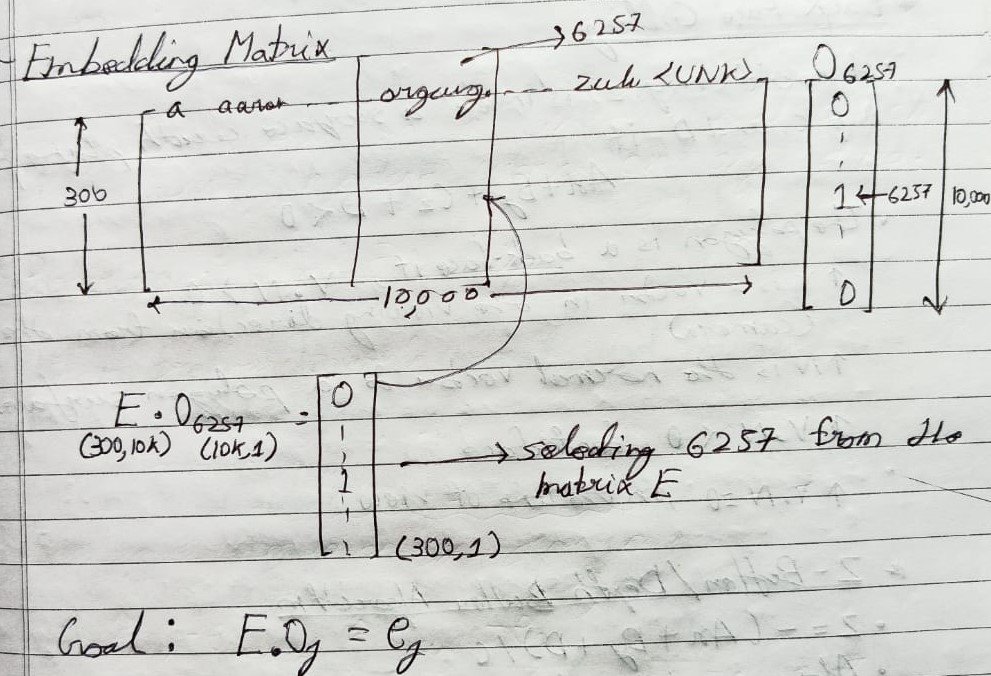 Embedding Matrix
→6257
a aaron --- organg. --- zulu <UNK>
O6257
300
10,000
0
1
1←6257
0
10,000
E.O6257 =
(300,10k) (10k,1)
0
1
1
(300,1)
→ selecting 6257 from the
matrix E
Goal: E.Oj = ej